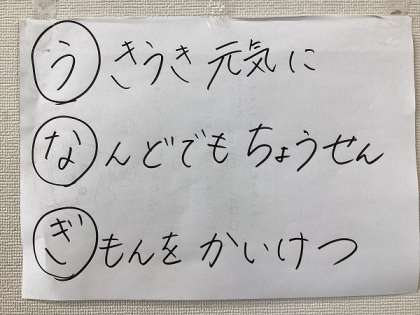 うきうき元気に
なんどでもちょうせん
ぎもんをかいけつ